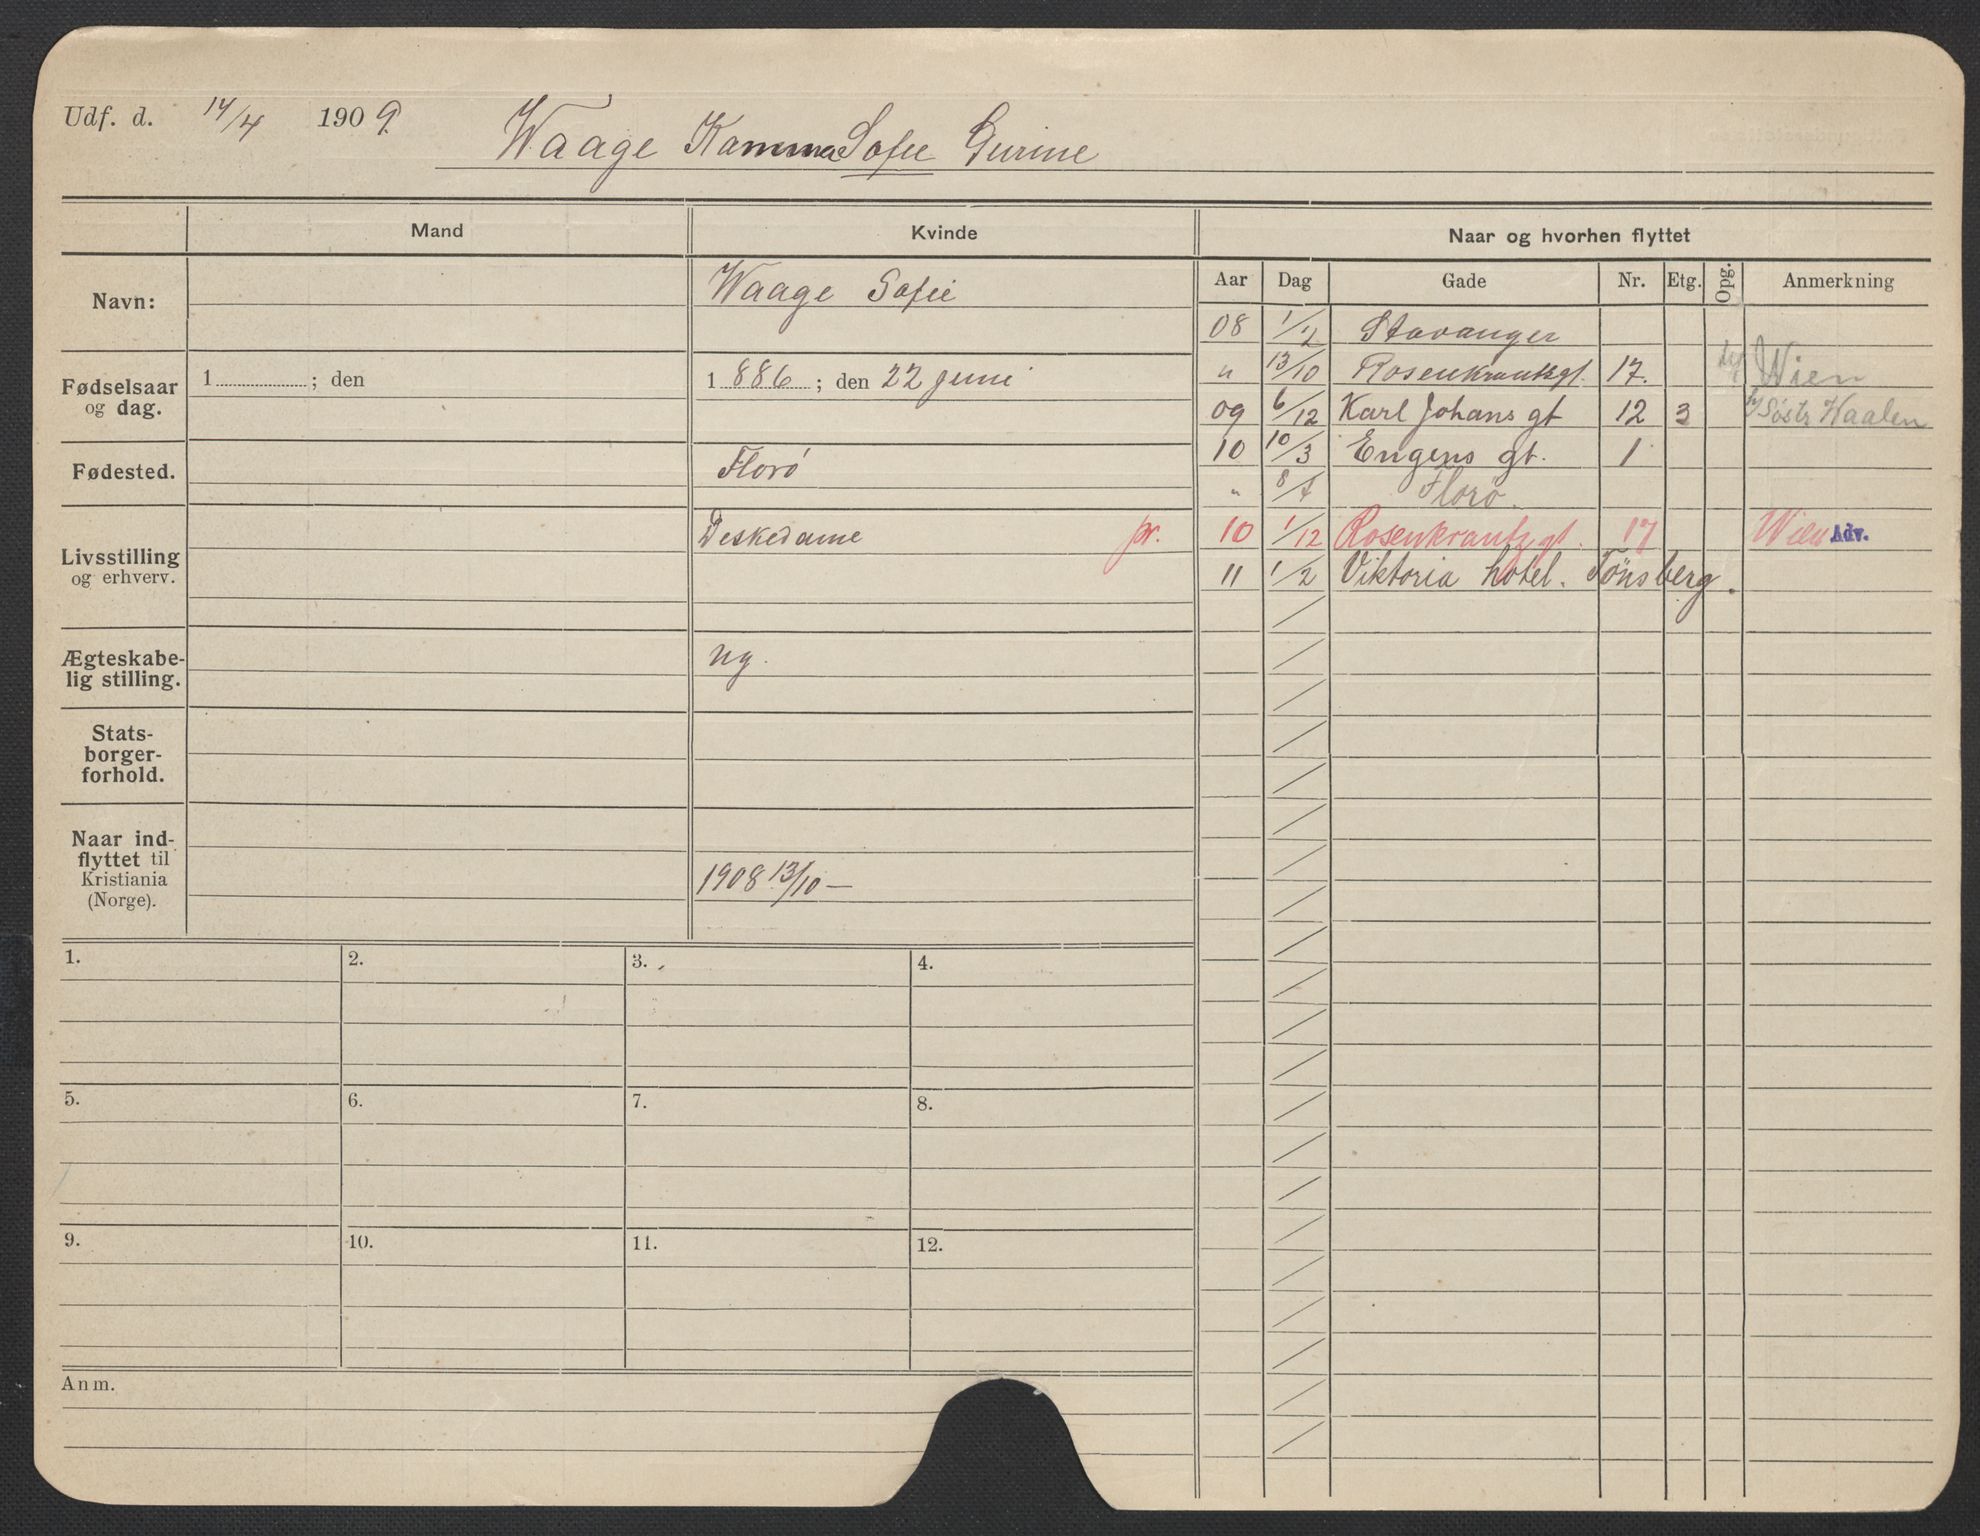 Udf. d. 14/4 1909. Waage Kamma Sofie Gurine
Mand
Kvinde
Naar og hvorhen flyttet
Navn:
Waage Sofie
Fødselsaar og dag.
1 ; den
1886 ; den 22 juni
Fødested.
Florø
Livsstilling og erhverv.
Deskedame pr.
Ægteskabe-
lig stilling.
ug.
Stats-
borger-
forhold.
Naar ind-
flyttet til
Kristiania
(Norge).
1908 13/10 —
Aar Dag Gade Nr. Etg. Opg. Anmerkning
08 1/2 Stavanger
" 13/10 Rosenkrantzgt. 17. Wien
09 6/12 Karl Johans gt 12 3 Søstr Kaalen
10 10/3 Engens gt. 1
" 8/7 Florø.
10 1/12 Rosenkrantzgt. 17 Wien Adv.
11 1/2 Viktoria hotel. Tönsberg.
1. 2. 3. 4.
5. 6. 7. 8.
9. 10. 11. 12.
Anm.